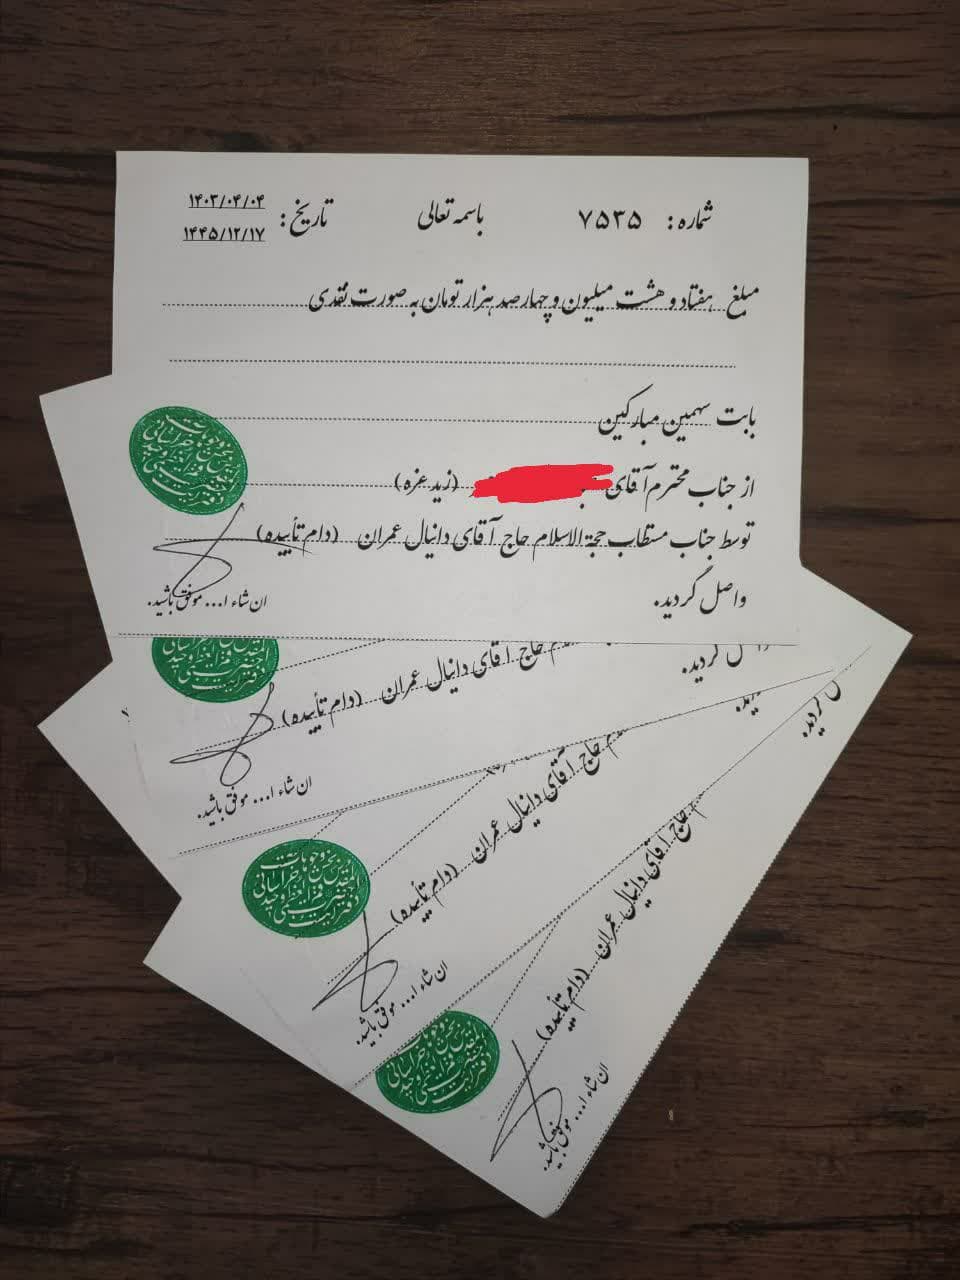 شماره: ۷۵۳۵
باسمه تعالی
تاریخ: ۱۴۰۳/۰۴/۰۴
۱۴۴۵/۱۲/۱۷
مبلغ هفتاد و هشت میلیون و چهارصد هزار تومان به صورت نقدی
بابت سهمین مبارکین
از جناب محترم آقای (زید عزه)
توسط جناب مستطاب حجة الاسلام حاج آقای دانیال عمران (دام تأییده)
واصل گردید.
ان شاء ا... موفق باشید.
واصل گردید.
حاج آقای دانیال عمران (دام تأییده)
ان شاء ا... موفق باشید.
حاج آقای دانیال عمران (دام تأییده)
ان شاء ا... موفق باشید.
گردید.
حاج آقای دانیال عمران (دام تأییده)
ان شاء ا... موفق باشید.